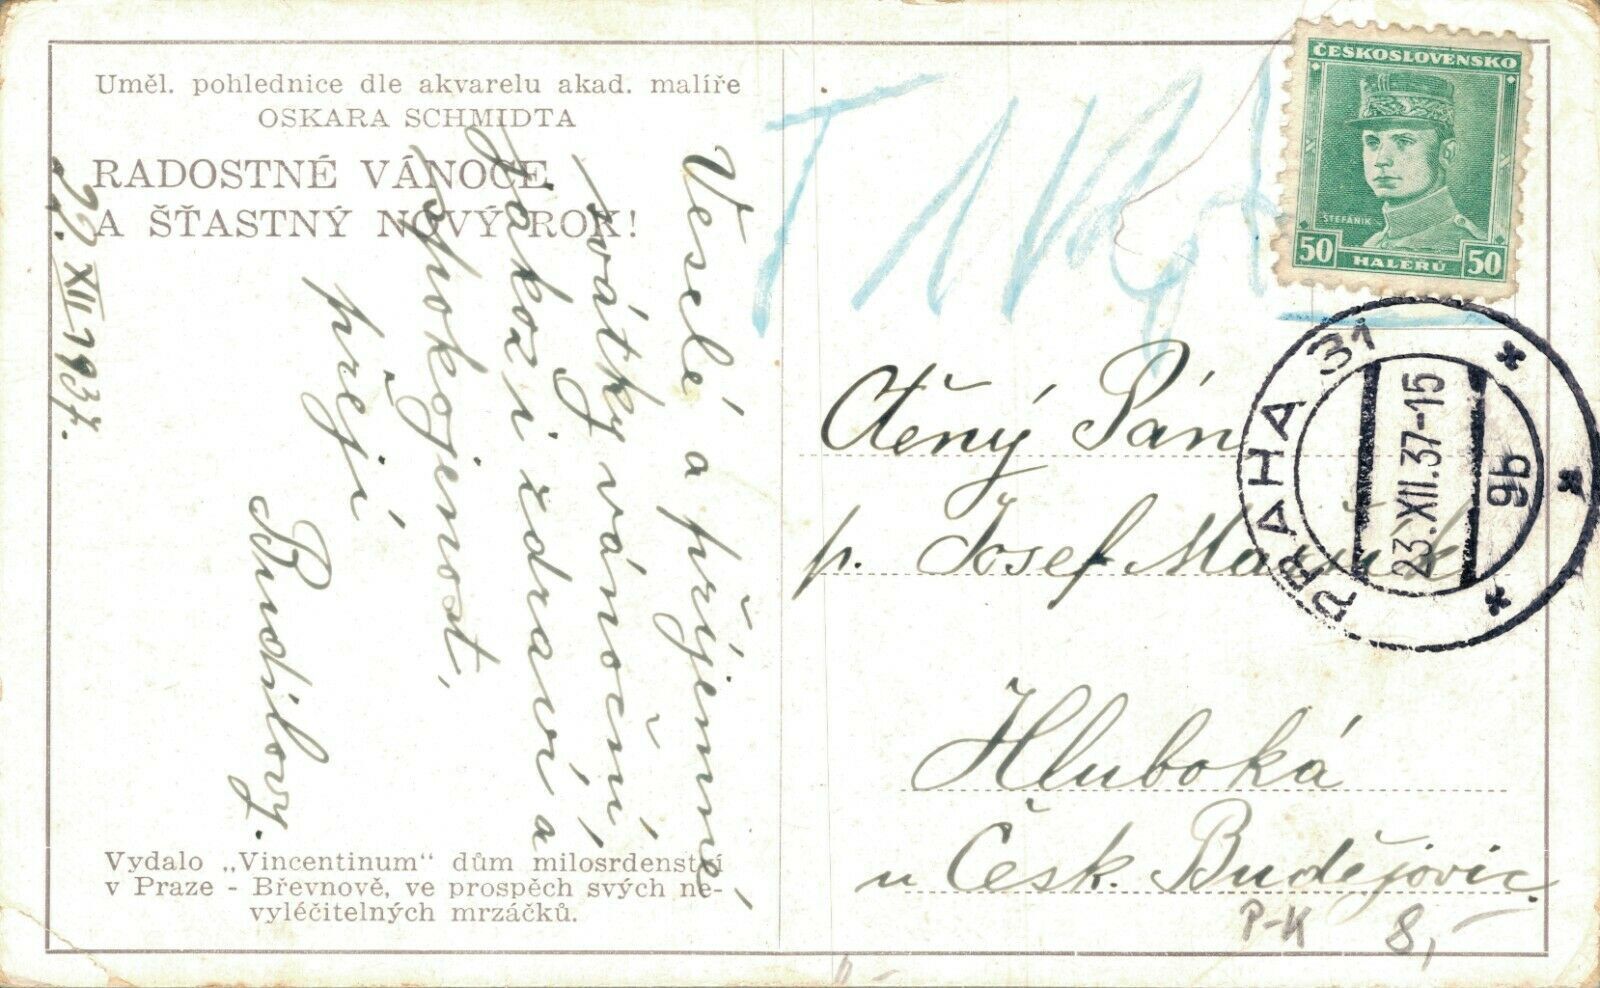 Uměl. pohlednice dle akvarelu akad. malíře
OSKARA SCHMIDTA
RADOSTNÉ VÁNOCE
A ŠŤASTNÝ NOVÝ ROK!
Veselé a příjemné
svátky vánoční,
jakož i zdraví a
spokojenost,
přejí
Budilovy.
22. XII. 1937.
Vydalo „Vincentinum" dům milosrdenství
v Praze - Břevnově, ve prospěch svých ne-
vyléčitelných mrzáčků.
T
ČESKOSLOVENSKO
ŠTEFÁNIK
50 HALERŮ 50
PRAHA 31
23.XII.37-15
9b
Ctěný Pán
p. Josef
Hluboká
u Česk. Budějovic
P-K 8,-